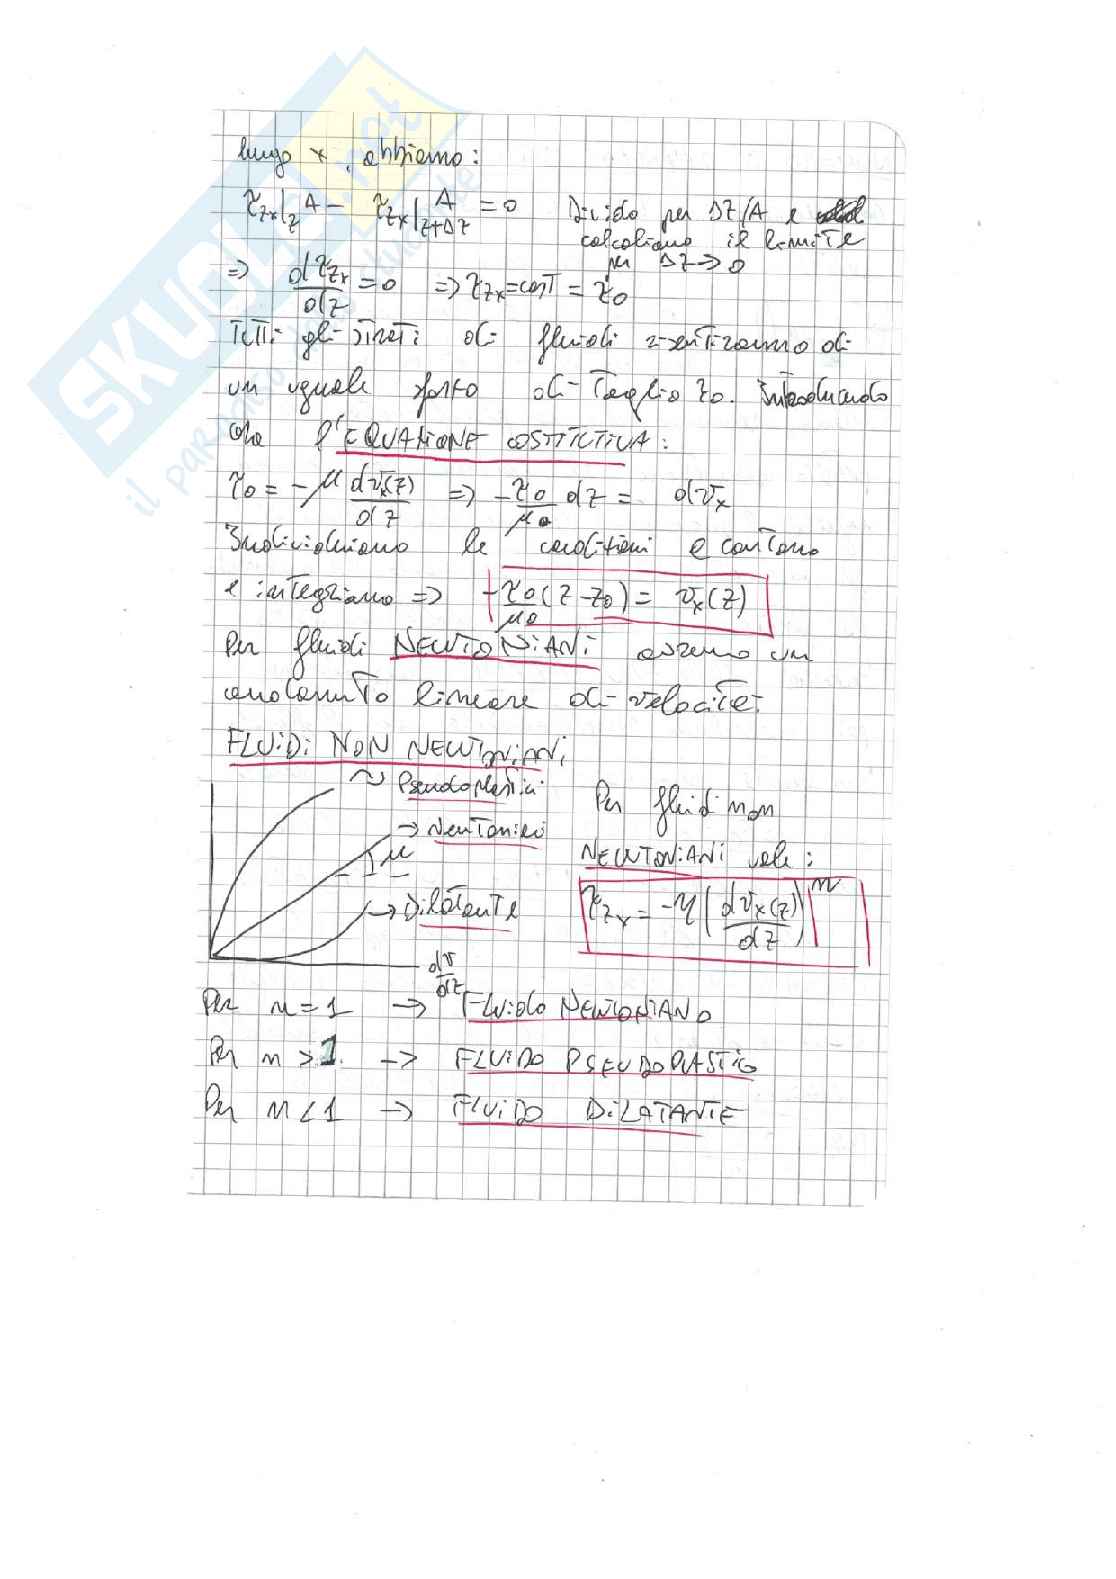 lungo x, abbiamo:
τzx|z A - τzx|z+Δz A = 0 Divido per ΔZ/A e
calcoliamo il limite
per ΔZ → 0
=> dτzx/dz = 0 => τzx = cost = τ0
Tutti gli strati di fluidi risentiranno di
un uguale sforzo di taglio τ0. Introducendo
ora l'EQUAZIONE COSTITUTIVA:
τ0 = -μ dvx(z)/dz => -τ0/μ0 dz = dvx
Individuiamo le condizioni e contorno
e integriamo => -τ0/μ0 (z-z0) = vx(z)
Per fluidi NEWTONIANI avremo un
andamento lineare di velocità:
FLUIDI NON NEWTONIANI
Pseudoplastici
→ Newtoniani
μ
→ Dilatante
dv/dz
Per fluidi non
NEWTONIANI vale:
τzx = -η (dvx(z)/dz)^n
Per n = 1 → FLUIDO NEWTONIANO
Per n > 1. → FLUIDO PSEUDOPLASTICO
Per n < 1 → FLUIDO DILATANTE
SKUOLA.net